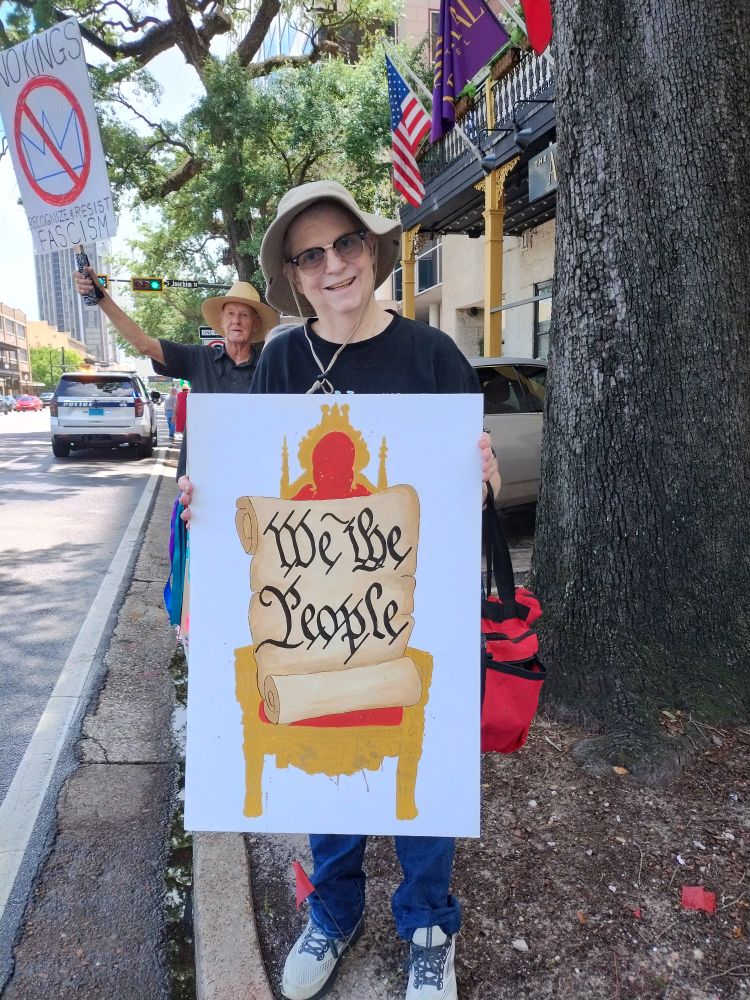 NO KINGS
RECOGNIZE & RESIST
FASCISM
S Joachim
POLICE
We The
People
THE